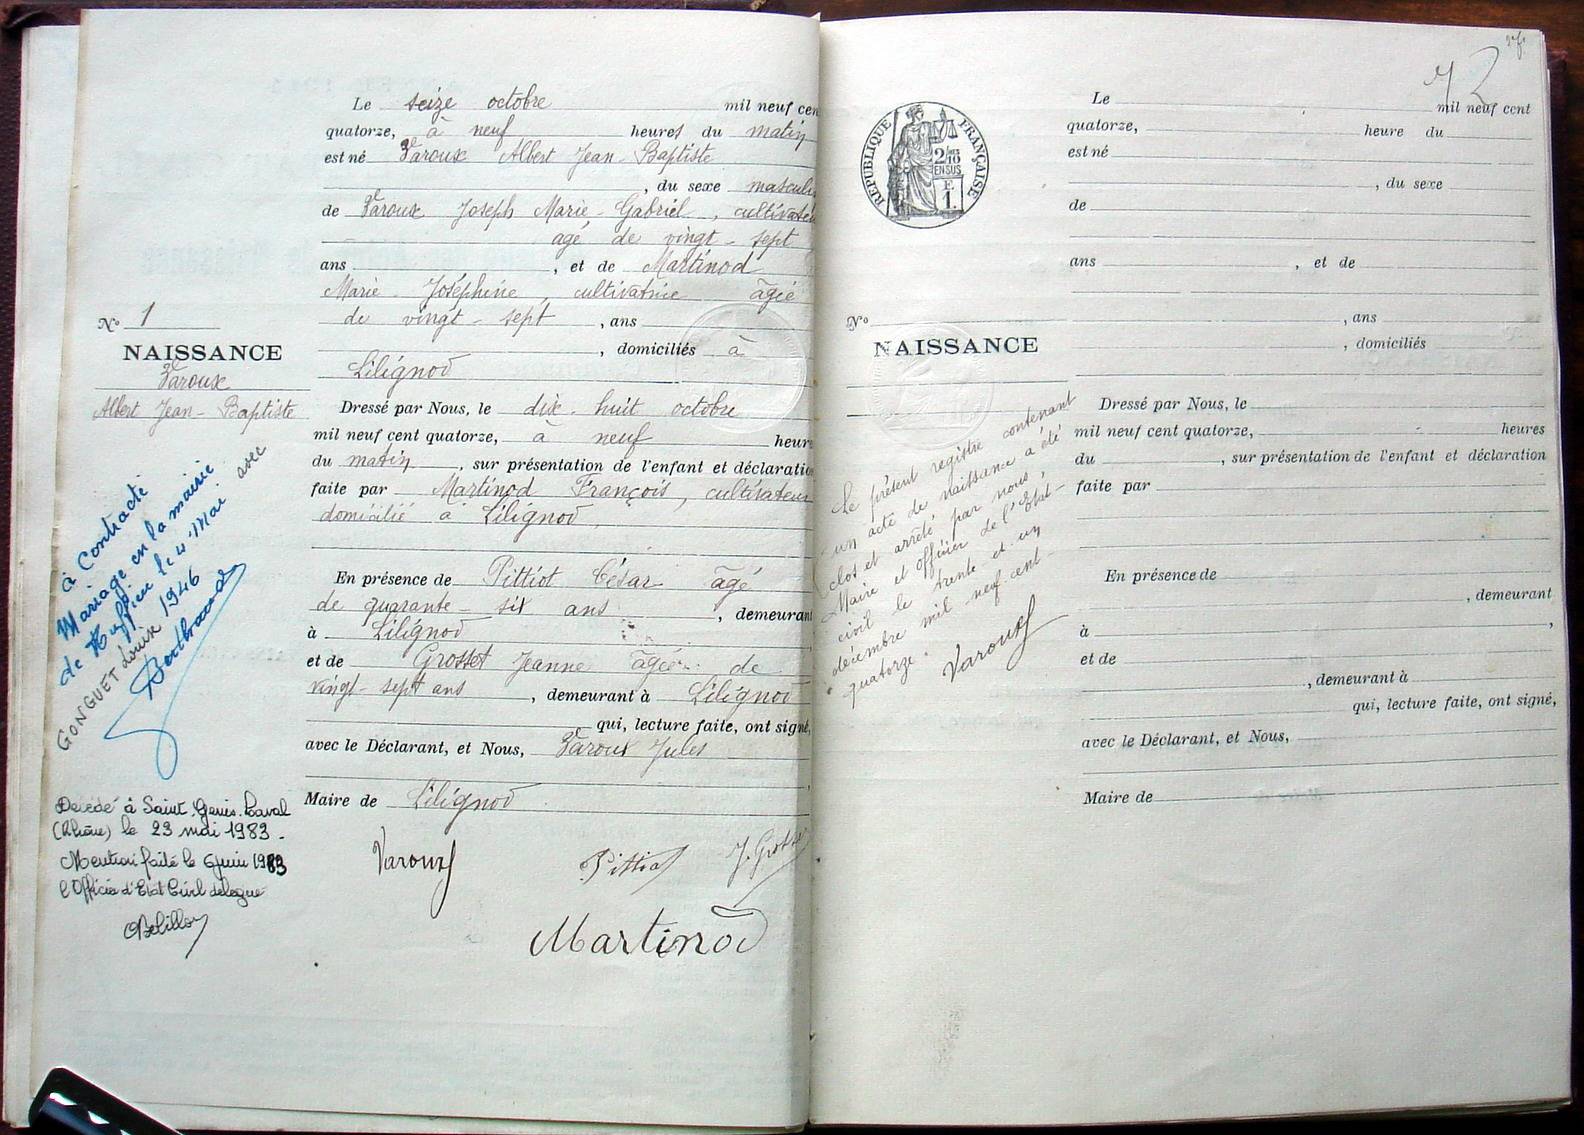 Le seize octobre mil neuf cen
quatorze, à neuf heures du matin
est né Varoux Albert Jean-Baptiste
, du sexe masculin
de Varoux Joseph Marie-Gabriel, cultivateu
agé de vingt-sept
ans , et de Martinod
Marie Joséphine, cultivatrice âgée
de vingt-sept , ans
, domiciliés à
Lilignod
Dressé par Nous, le dix-huit octobre
mil neuf cent quatorze, à neuf heure
du matin , sur présentation de l'enfant et déclaratio
faite par Martinod François, cultivateur
domicilié à Lilignod
En présence de Pittiot César âgé
de quarante-six ans , demeurant
à Lilignod
et de Grosset Jeanne âgée de
vingt-sept ans , demeurant à Lilignod
qui, lecture faite, ont signé,
avec le Déclarant, et Nous, Varoux Jules
Maire de Lilignod
Varoux Pittiot J. Grosset
Martinod
No 1
NAISSANCE
Varoux
Albert Jean-Baptiste
à Contracté
Mariage en la mairie
de Ruffieu le 4 Mai avec
1946
GONGUET
Décédé à Saint.Genis.Laval
(Rhône) le 23 mai 1983.
Mention faite le 6 juin 1983
l'Officier d'Etat Civil délégué
72
RÉPUBLIQUE FRANÇAISE
2/10
EN SUS
F
1.
Le
mil neuf cent
quatorze, heure du
est né
, du sexe
de
ans , et de
No , ans
NAISSANCE , domiciliés
Dressé par Nous, le
mil neuf cent quatorze, heures
du , sur présentation de l'enfant et déclaration
faite par
En présence de
, demeurant
à ,
et de
, demeurant à
qui, lecture faite, ont signé,
avec le Déclarant, et Nous,
Maire de
Le présent registre contenant
un acte de naissance a été
clos et arrêté par nous,
Maire et officier de l'Etat-
civil le trente et un
décembre mil neuf cent
quatorze.
Varoux